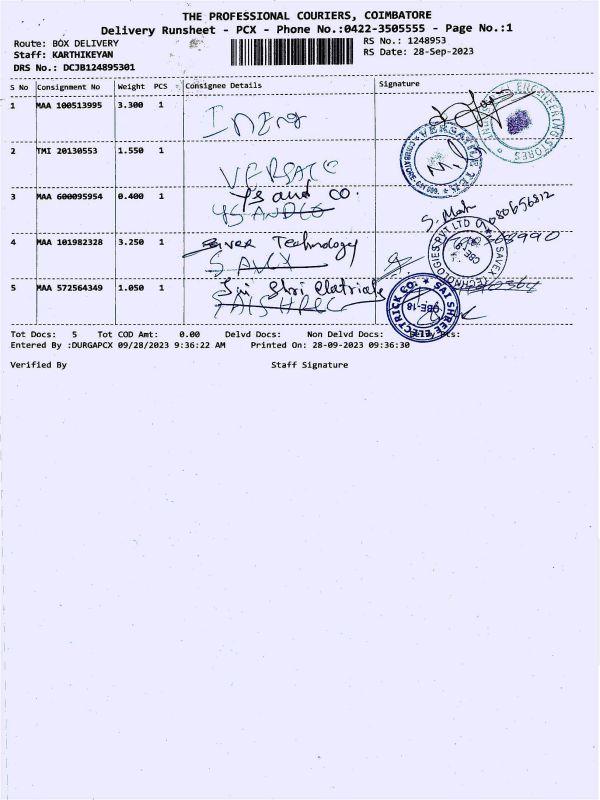 THE PROFESSIONAL COURIERS, COIMBATORE
Delivery Runsheet - PCX - Phone No.:0422-3505555 - Page No.:1
Route: BOX DELIVERY
RS No.: 1248953
Staff: KARTHIKEYAN
RS Date: 28-Sep-2023
DRS No.: DCJB124895301
S No Consignment No Weight PCS Consignee Details Signature
1 MAA 100513995 3.300 1
2 TMI 20130553 1.550 1
3 MAA 600095954 0.400 1 YS and CO.
YS ANDCO
4 MAA 101982328 3.250 1 Technology
SAVEX
5 MAA 572564349 1.050 1 Sai Shri
Tot Docs: 5 Tot COD Amt: 0.00 Delvd Docs: Non Delvd Docs:
Entered By :DURGAPCX 09/28/2023 9:36:22 AM Printed On: 28-09-2023 09:36:30
Verified By Staff Signature